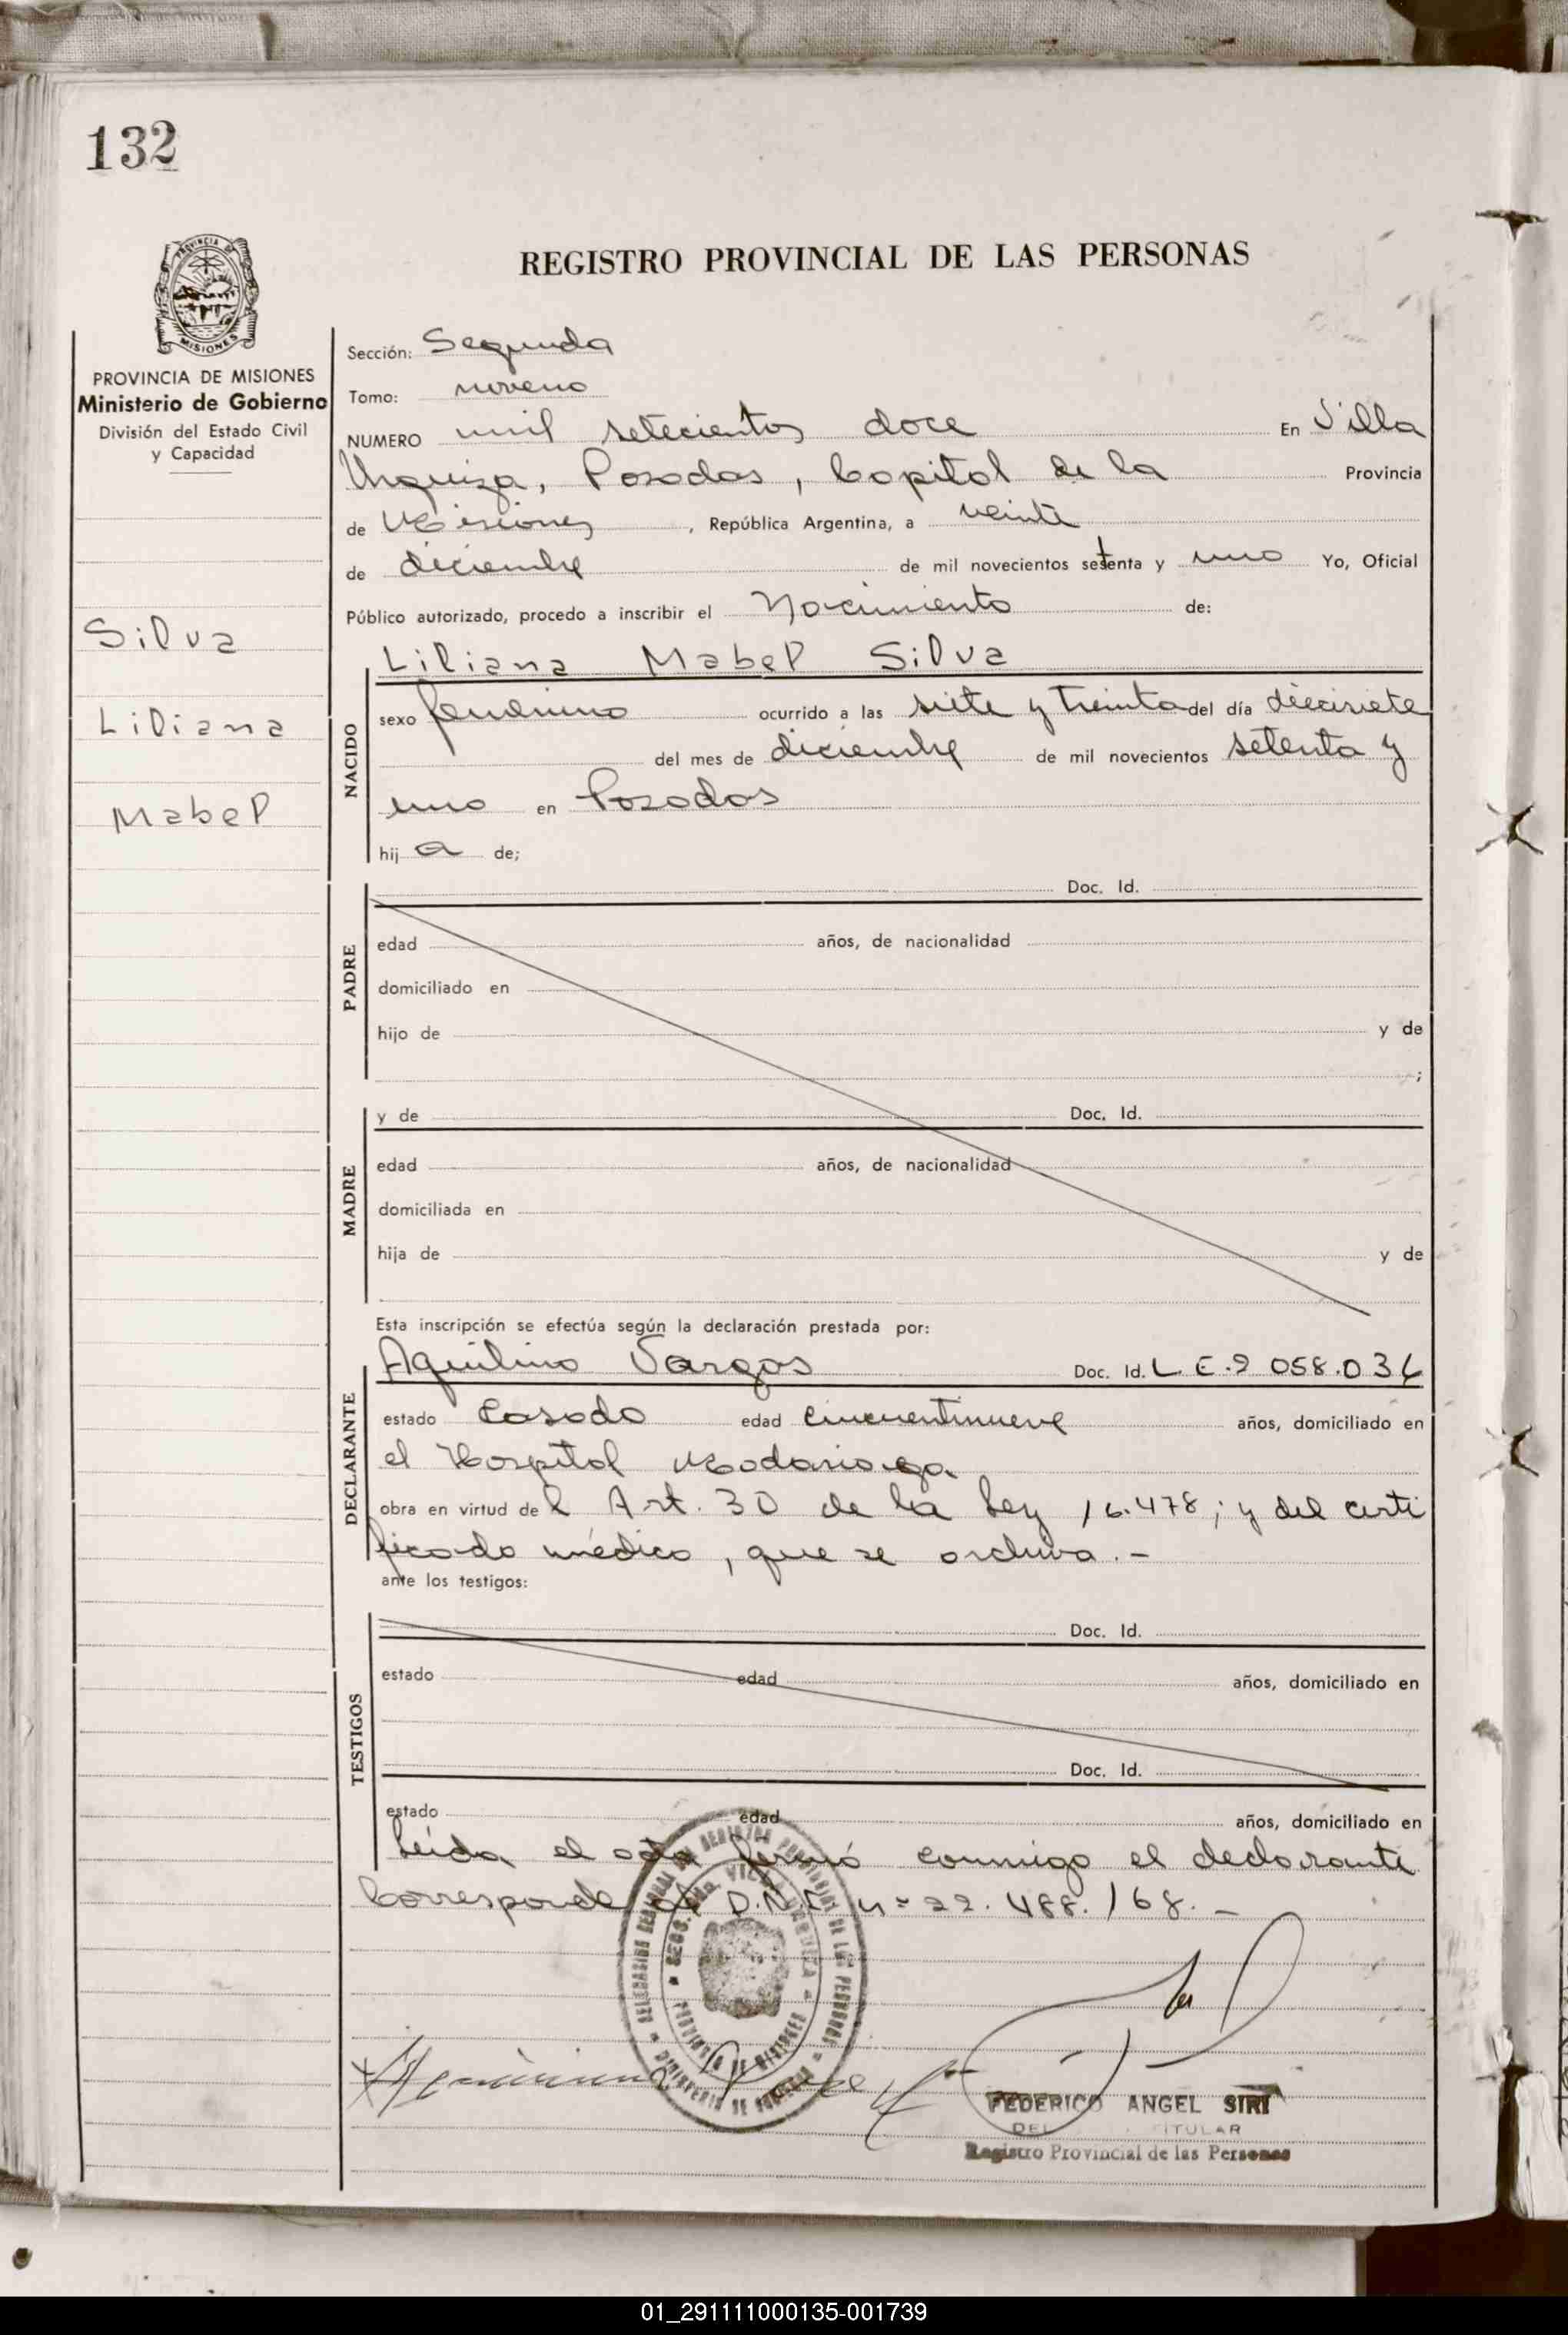 132
PROVINCIA DE
MISIONES
REGISTRO PROVINCIAL DE LAS PERSONAS
PROVINCIA DE MISIONES
Ministerio de Gobierno
División del Estado Civil
y Capacidad
Silva
Liliana
Mabel
Sección: Segunda
Tomo: noveno
NUMERO mil setecientos doce En Villa
Urquiza, Posadas, Capital de la Provincia
de Misiones, República Argentina, a veinte
de diciembre de mil novecientos setenta y uno Yo, Oficial
Público autorizado, procedo a inscribir el Nacimiento de:
Liliana Mabel Silva
NACIDO
sexo femenino ocurrido a las siete y treinta del día diecisiete
del mes de diciembre de mil novecientos setenta y
uno en Posadas
hija de;
PADRE
Doc. Id.
edad años, de nacionalidad
domiciliado en
hijo de y de
;
MADRE
y de Doc. Id.
edad años, de nacionalidad
domiciliada en
hija de y de
Esta inscripción se efectúa según la declaración prestada por:
DECLARANTE
Aquilino Vargas Doc. Id. L.E. 2 058.036
estado Casado edad cincuentinueve años, domiciliado en
el Hospital Madariaga
obra en virtud del Art. 30 de la Ley 16.478; y del certi
ficado médico, que se archiva.-
ante los testigos:
TESTIGOS
Doc. Id.
estado edad años, domiciliado en
Doc. Id.
estado edad años, domiciliado en
Leída el acta firmó conmigo el declarante
Corresponde al D.N.I. nº 22.488.168.-
FEDERICO ANGEL SIRI
TITULAR
Registro Provincial de las Personas
01_291111000135-001739